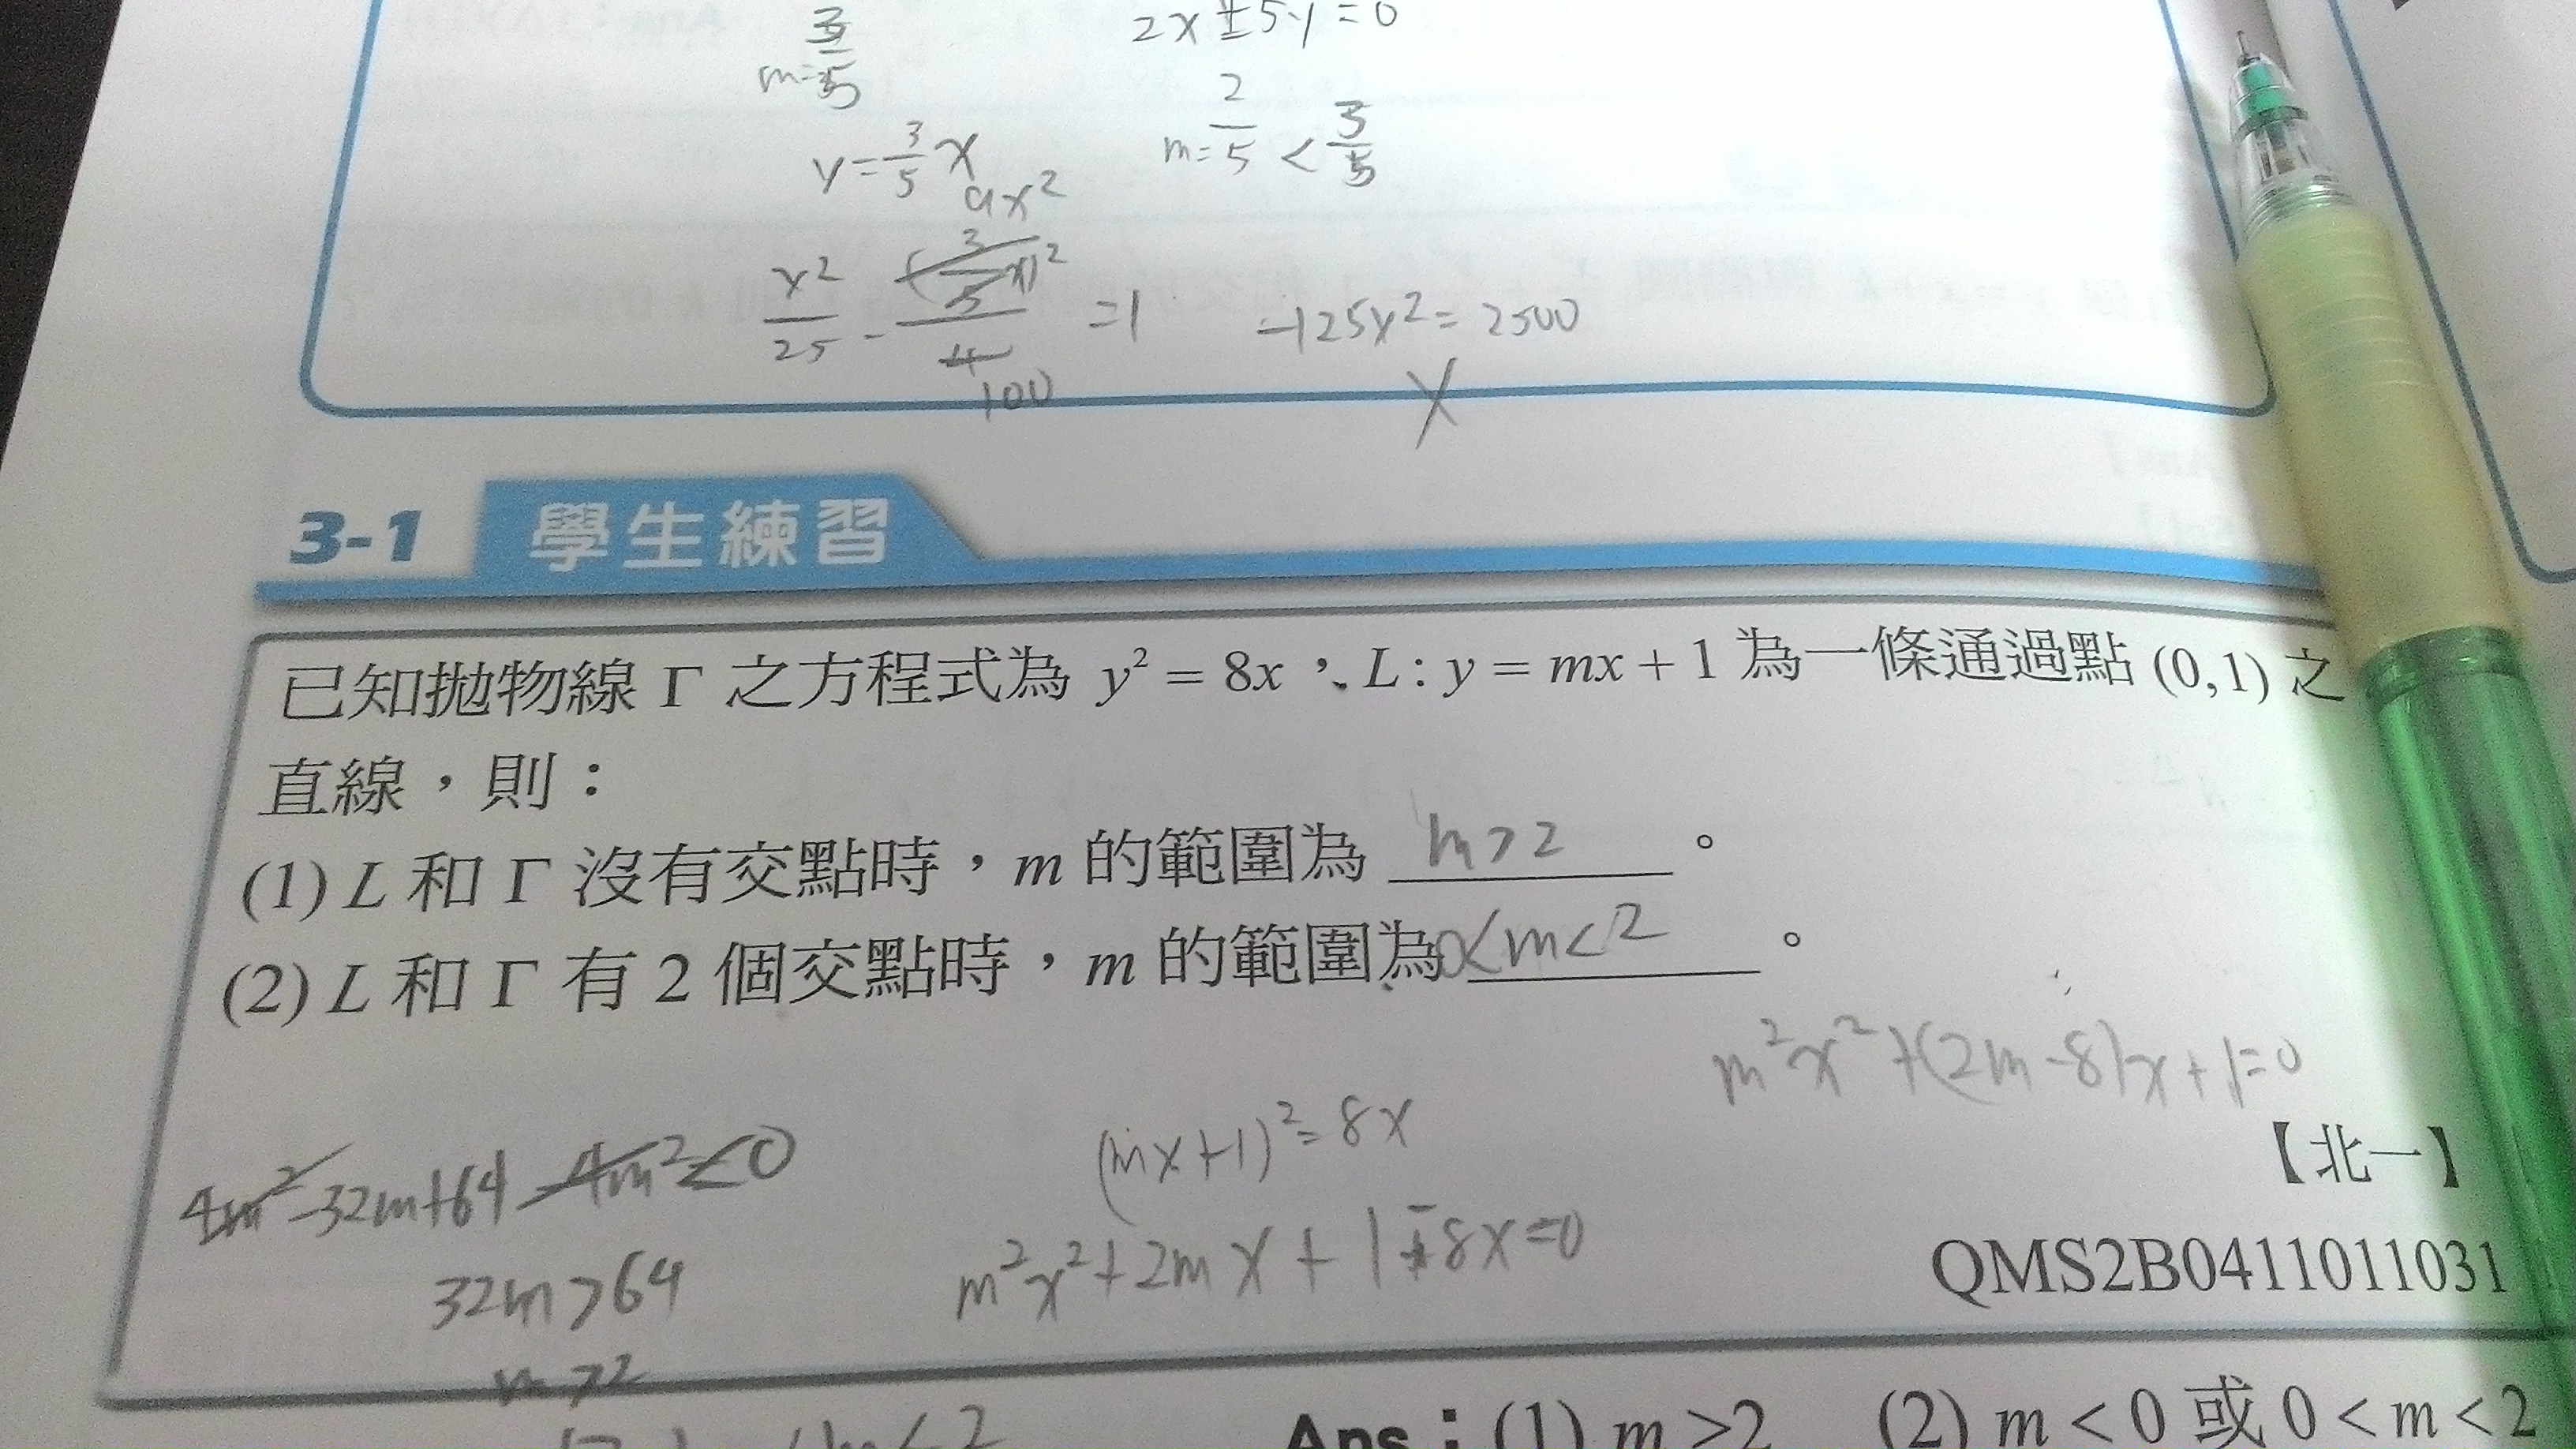 3/5
m=3/5
2x±5y=0
m=2/5<3/5
y=3/5x
9x²
x²/25-(3/5x)²/4=1
100
-125x²=2500
3-1 學生練習
已知拋物線 Γ 之方程式為 y² = 8x，L : y = mx + 1 為一條通過點 (0,1) 之
直線，則：
(1) L 和 Γ 沒有交點時，m 的範圍為 m>2 。
(2) L 和 Γ 有 2 個交點時，m 的範圍為 0<m<2 。
m²x²+(2m-8)x+1=0
(mx+1)²=8x
【北一】
4m²-32m+64-4m²<0
m²x²+2mx+1-8x=0
QMS2B0411011031
32m>64
m>2
Ans：(1) m >2 (2) m < 0 或 0 < m < 2